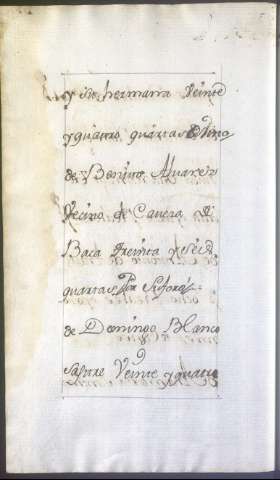 y su hermana Veinte
y quatro quartas
de Benito Alvarez
Vecino de Caveza de
Baca treinta y seis
quartas Por
de Domingo Blanco
sastre Veinte y quatro